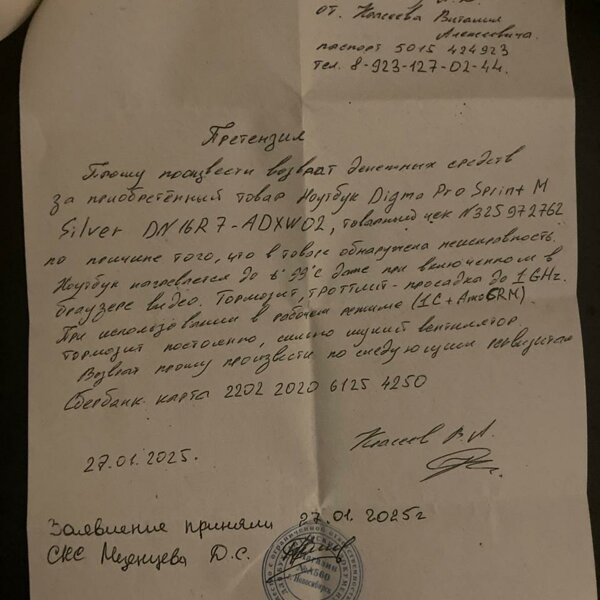 от. Класеева Виталия
Алексеевича.
паспорт 5015 424923
тел. 8-923-127-02-44.
Претензия
Прошу произвести возврат денежных средств
за приобретённый товар Ноутбук Digma Pro Sprint M
Silver DN16R7-ADXW02, товарный чек N325972762
по причине того, что в товаре обнаружена неисправность.
Ноутбук нагревается до t° 99°C даже при включенном в
браузере видео. Тормозит, троттлит - просадка до 1GHz.
При использовании в рабочем режиме (1С + AmoCRM)
тормозит постоянно, сильно шумит вентилятор
Возврат прошу произвести по следующим реквизитам
Сбербанк карта 2202 2020 6125 4250
В.А.
27.01.2025.
Заявление приняли 27.01.2025г
СКС Мезенцева Д.С.
Магазин
г. Новосибирск